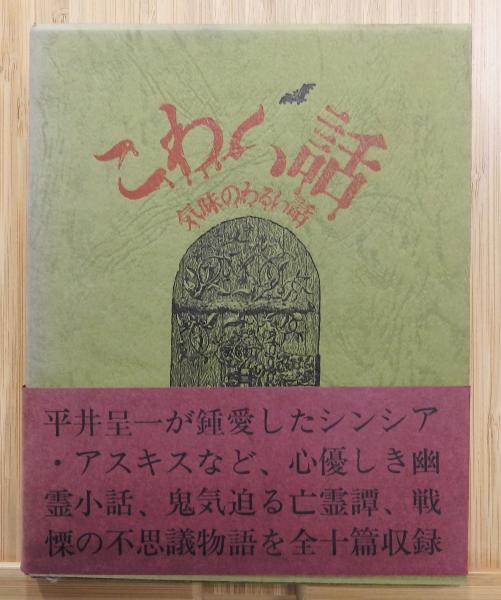 こわい話
気味のわるい話
平井呈一が鍾愛したシンシア
・アスキスなど、心優しき幽
霊小話、鬼気迫る亡霊譚、戦
慄の不思議物語を全十篇収録